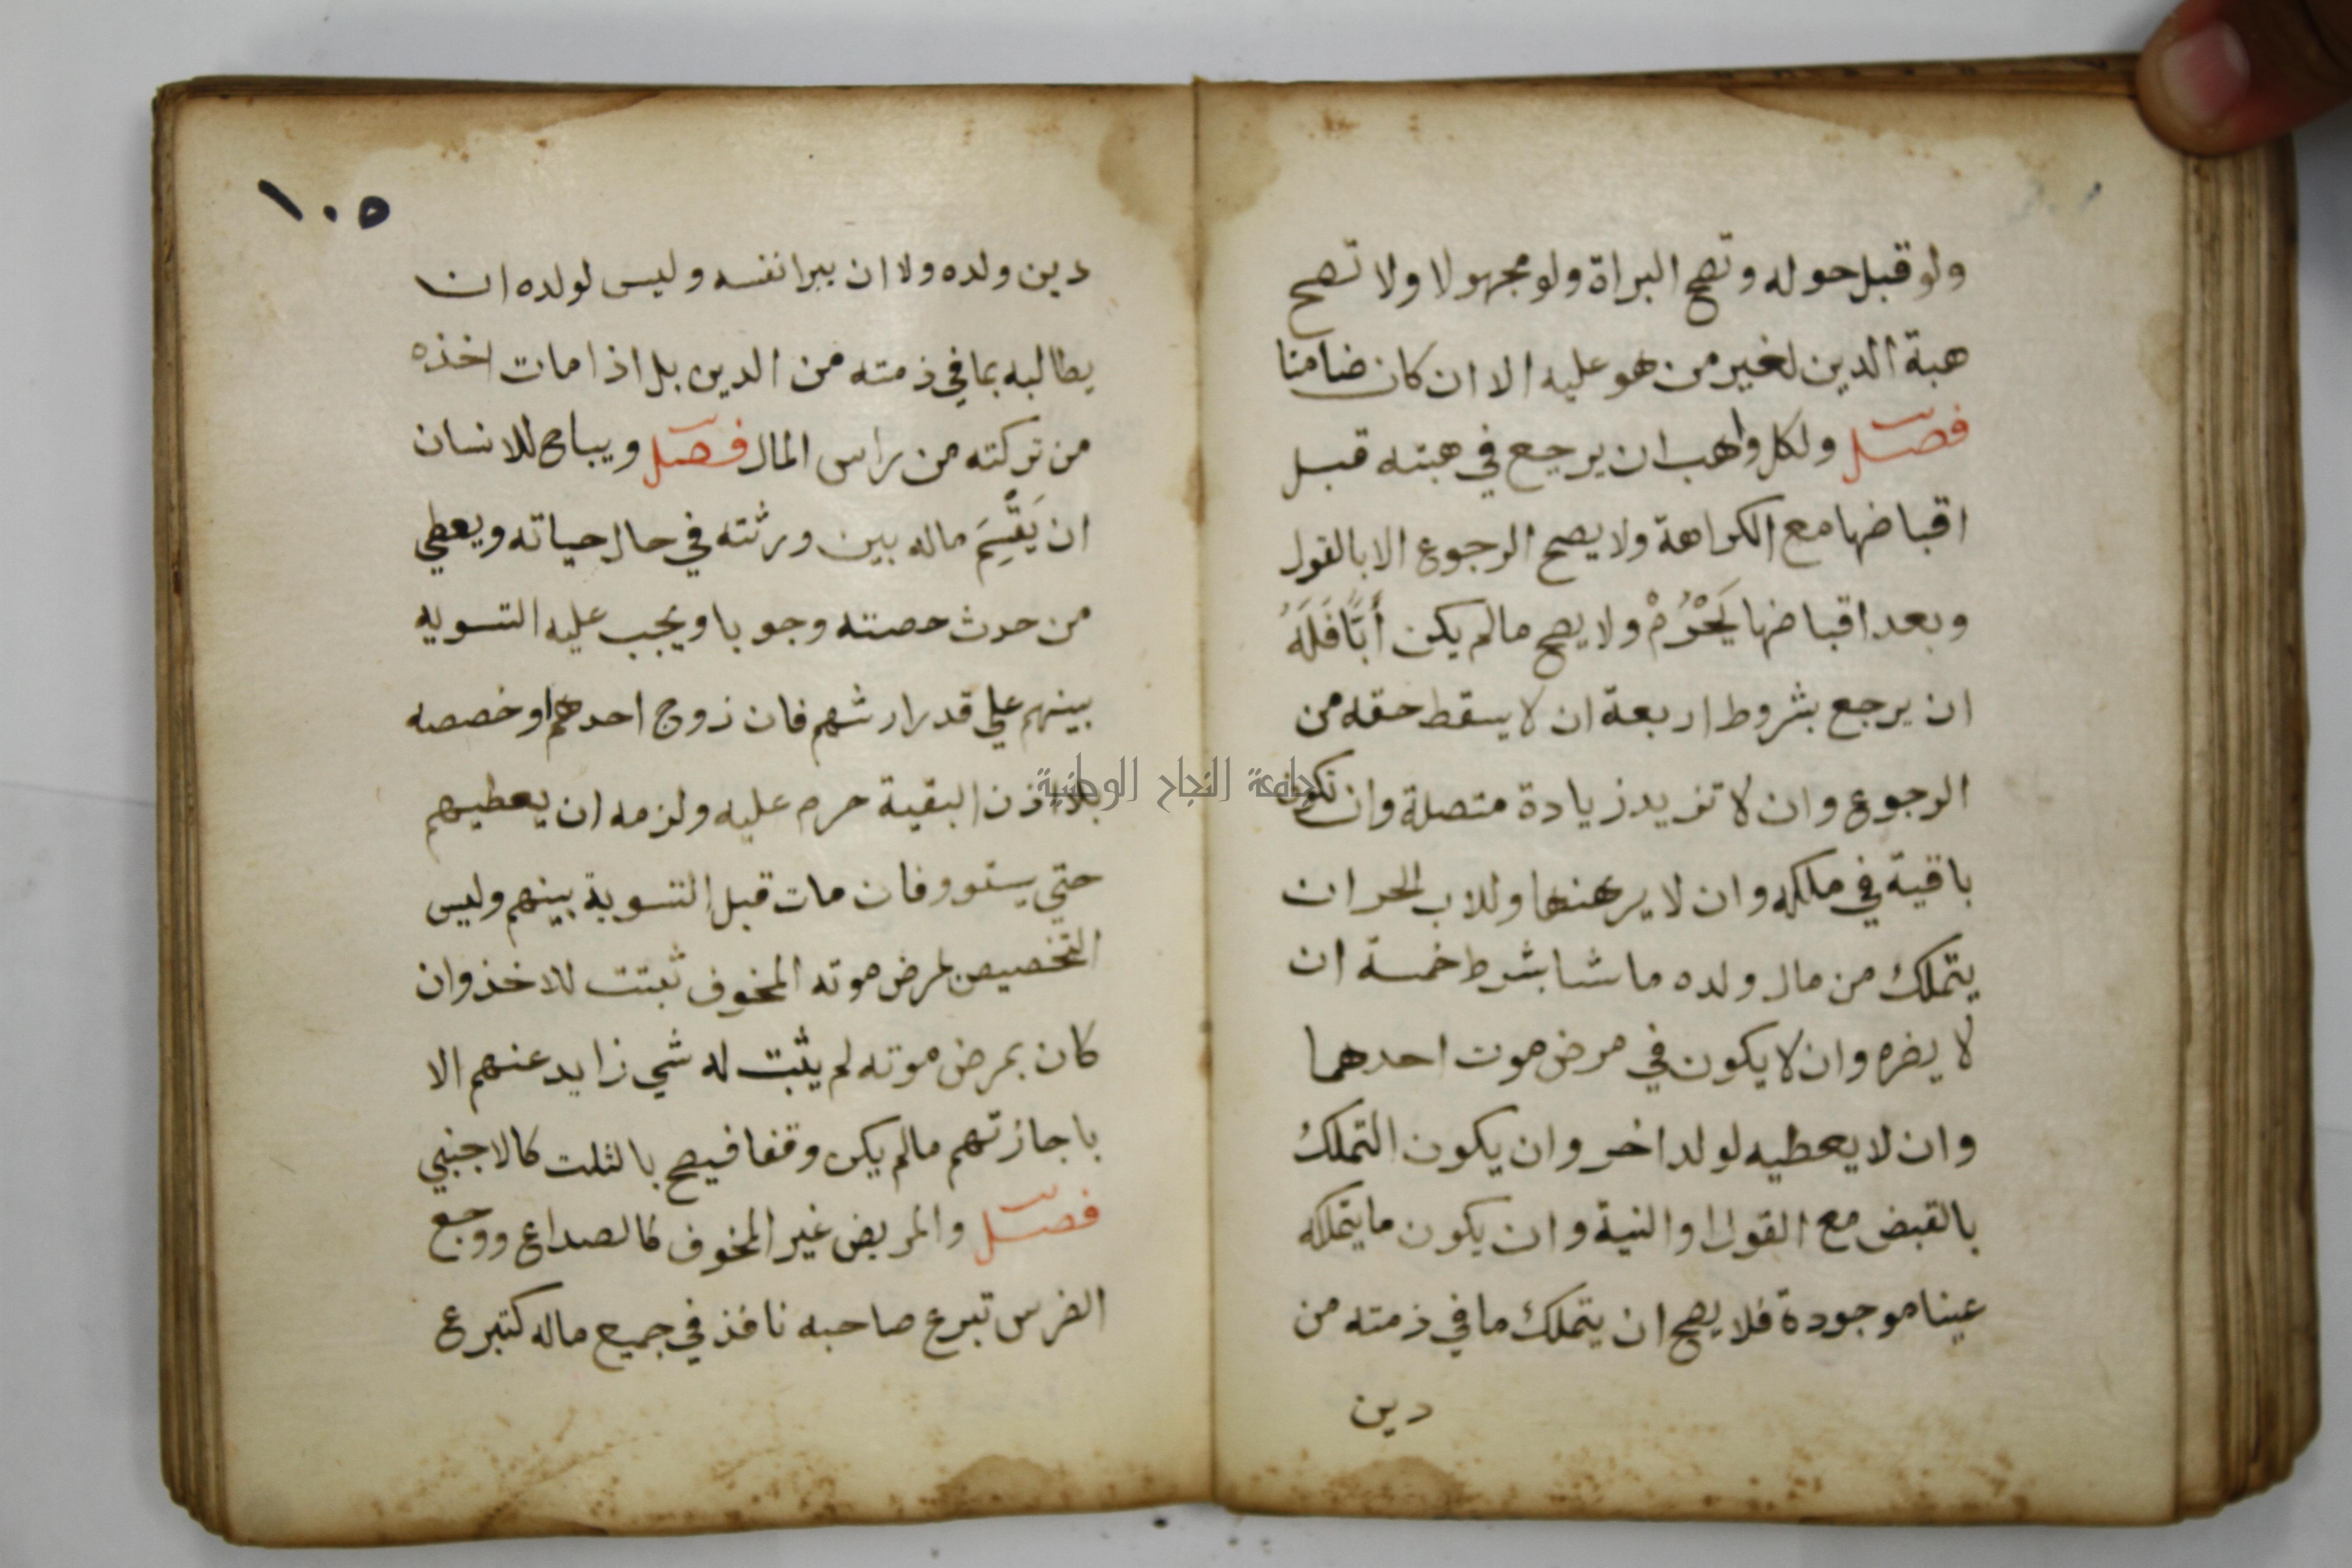 ولو قبل حوله وتصح البراة ولو مجهولا ولا تصح
هبة الدين لغير من هو عليه الا ان كان ضامنا
فصل ولكل واهب ان يرجع في هبته قبل
اقباضها مع الكراهة ولا يصح الرجوع الا بالقول
وبعد اقباضها يَحْرُمْ ولا يصح مالم يكن أَبًّا فَلَهُ
ان يرجع بشروط اربعة ان لا يسقط حقه من
الرجوع وان لا تزيد زيادة متصلة وان تكون
باقية في ملكه وان لا يرهنها وللاب الحر ان
يتملك من مال ولده ما شا بشرط خمسة ان
لا يضره وان لا يكون في مرض موت احدهما
وان لا يعطيه لولد اخر وان يكون التملك
بالقبض مع القول او النية وان يكون ما يتملكه
عينا موجودة فلا يصح ان يتملك ما في ذمته من
دين
١٠٥
دين ولده ولا ان يبرا نفسه وليس لولده ان
يطالبه بما في ذمته من الدين بل اذا مات اخذه
من تركته من راس المال فصل ويباح للانسان
ان يَقْسِمَ ماله بين ورثته في حال حياته ويعطي
من حدث حصته وجوبا ويجب عليه التسويه
بينهم علي قدر ارثهم فان زوج احدهم او خصصه
بلا اذن البقية حرم عليه ولزمه ان يعطيهم
حتي يستوو فان مات قبل التسوية بينهم وليس
التخصيص لمرض موته المخوف ثبتت للاخذ وان
كان بمرض موته لم يثبت له شي زايد عنهم الا
باجازتهم مالم يكن وقفا فيصح بالثلث كالاجنبي
فصل والمريض غير المخوف كالصداع ووجع
الضرس تبرع صاحبه نافذ في جميع ماله كتبرع
جامعة النجاح الوطنية